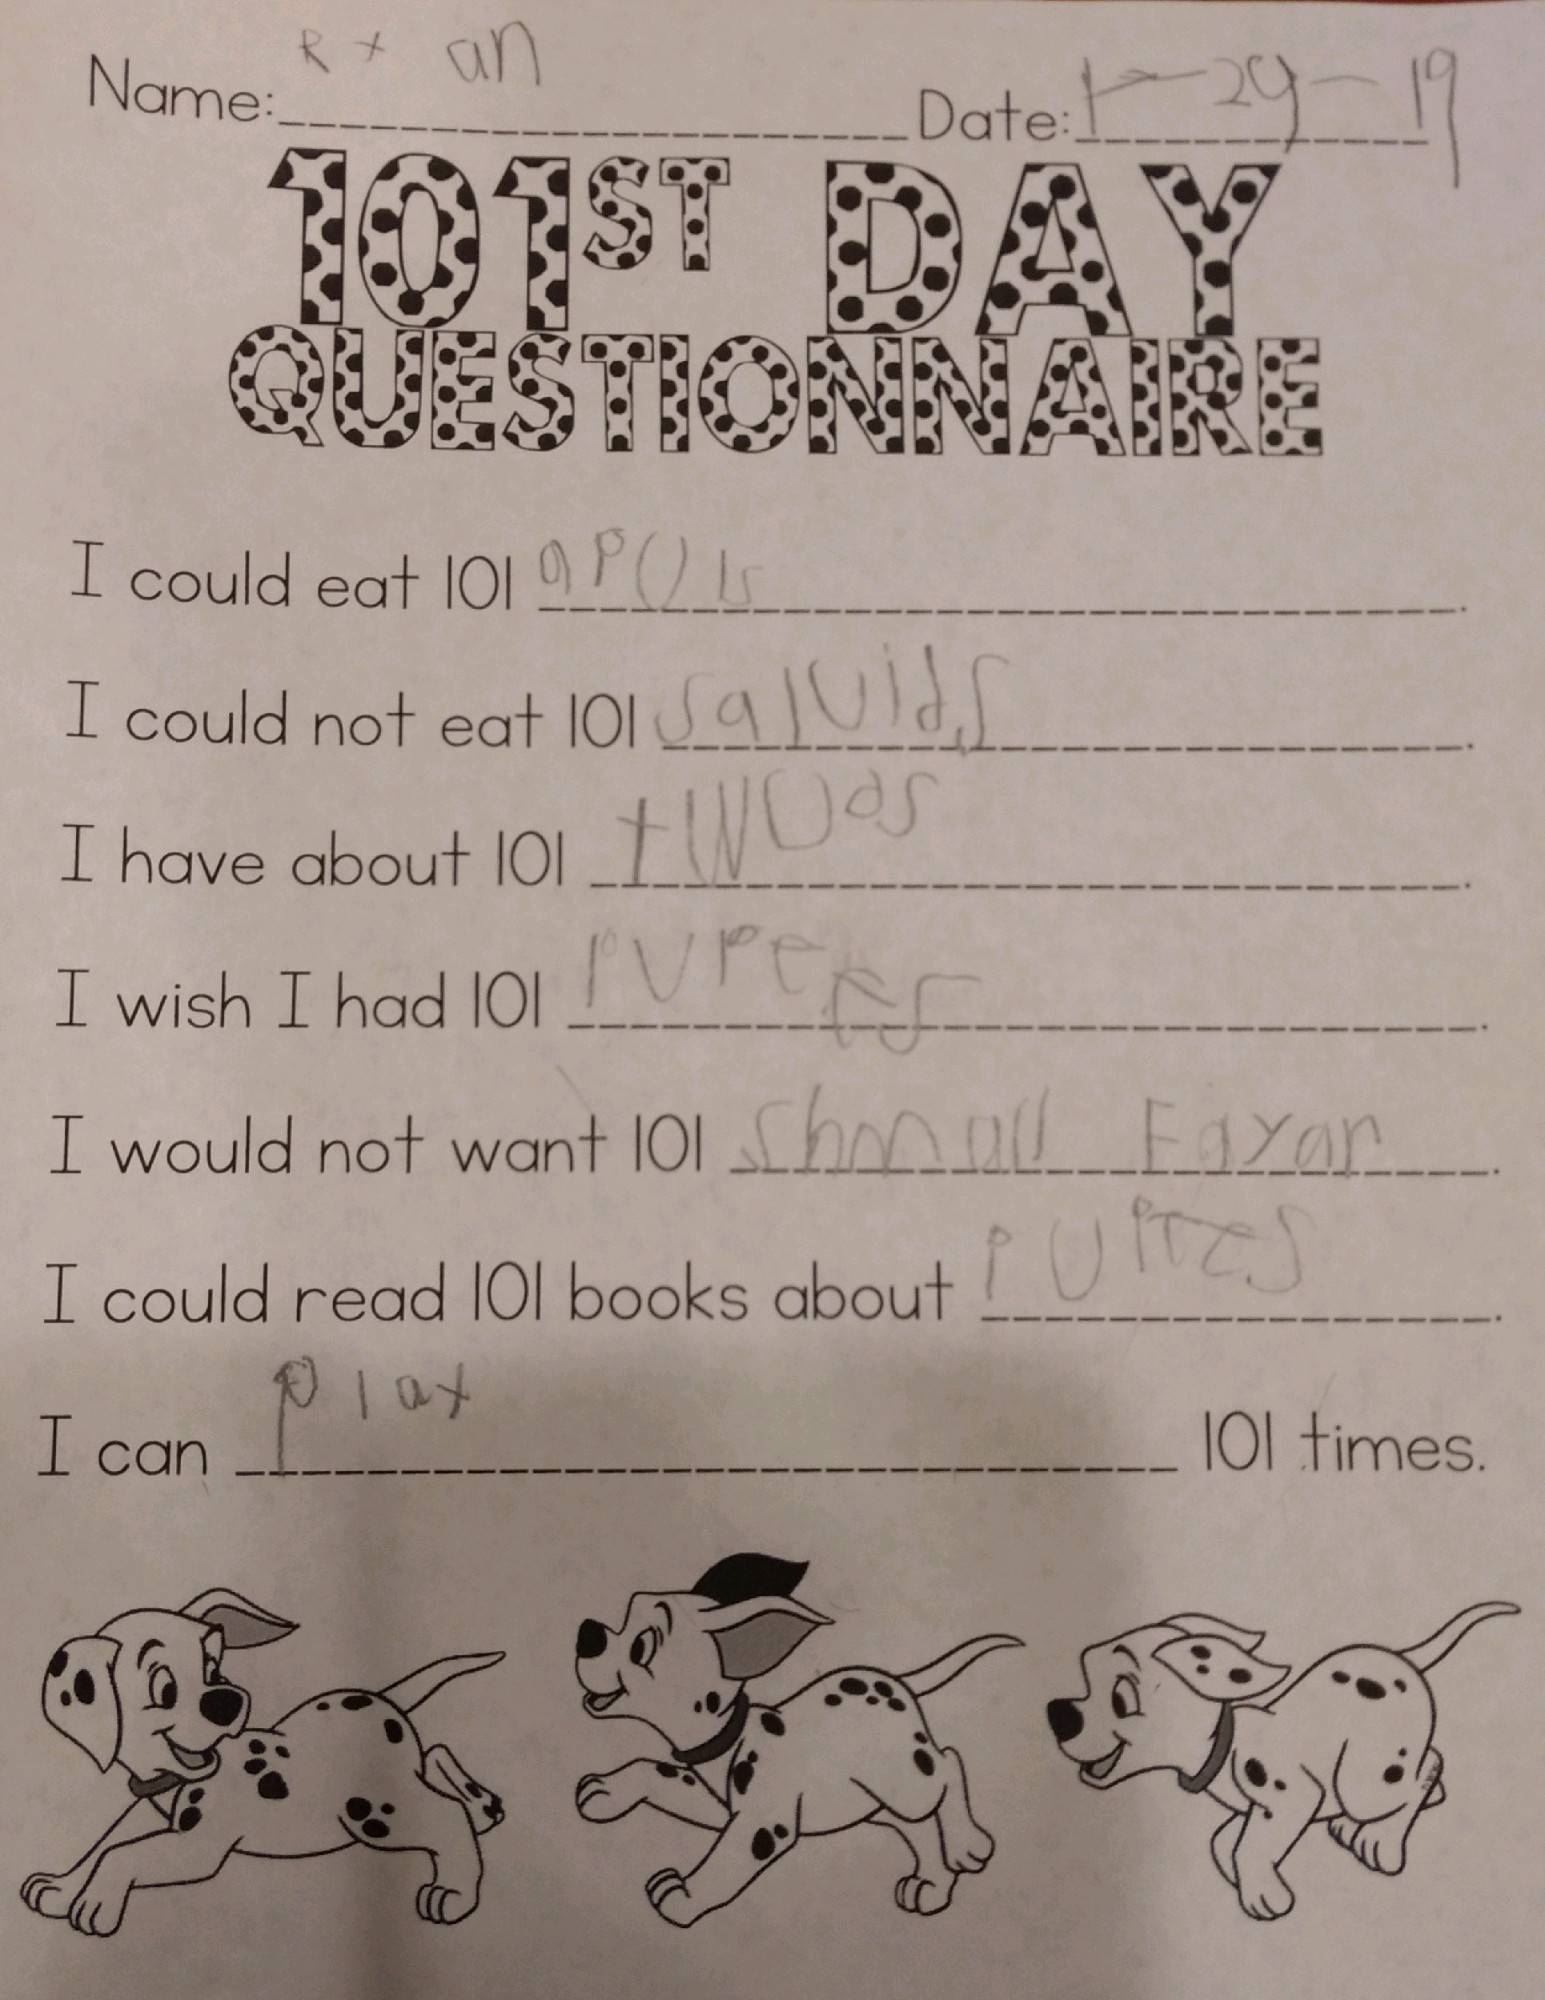 Name: Rxan Date: 1-24-19
101ST DAY
QUESTIONNAIRE
I could eat 101 apUls.
I could not eat 101 salUids.
I have about 101 tWUds.
I wish I had 101 PUPEES.
I would not want 101 Shmall Fayar.
I could read 101 books about PUPIES.
I can Plax 101 times.